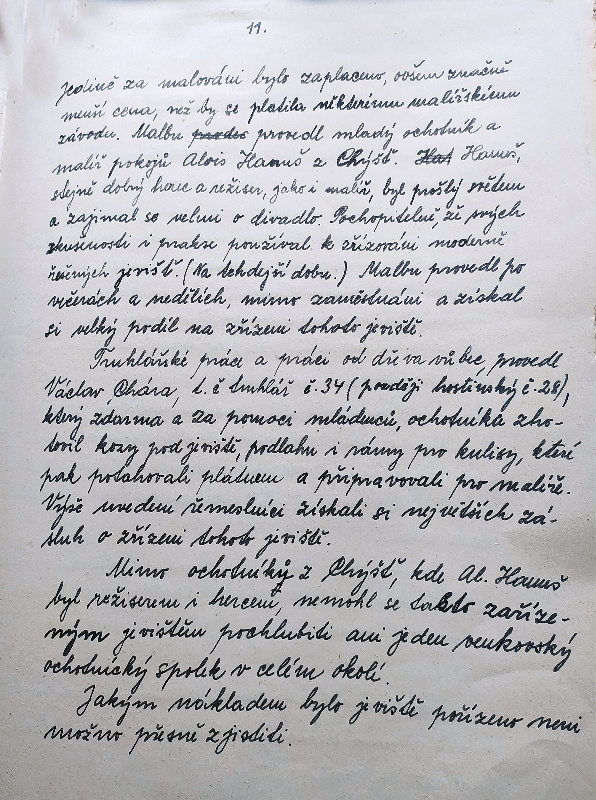 11.
Jedině za malování bylo zaplaceno, ovšem značně
menší cena, než by se platila některému malířskému
závodu. Malbu provedl mladý ochotník a
malíř pokojů Alois Hanuš z Chýšť. Hanuš,
stejně dobrý herec a režiser, jako i malíř, byl prošlý světem
a zajímal se velmi o divadlo. Pochopitelně, že svých
zkušeností i prakse používal k zřizování moderně
řešených jevišť. (Na tehdejší dobu.) Malbu provedl po
večerách a nedělích, mimo zaměstnání a získal
si velký podíl na zřízení tohoto jeviště.
Truhlářské práce a práci od dřeva vůbec, provedl
Václav Chára, t. č truhlář č. 34 (později hostinský č. 28),
který zdarma a za pomoci mládenců, ochotníků zho-
tovil kozy pod jeviště, podlahu i rámy pro kulisy, které
pak potahovali plátnem a připravovali pro malíře.
Výše uvedení řemeslníci získali si největších zá-
sluh o zřízení tohoto jeviště.
Mimo ochotníků z Chýšť, kde Al. Hanuš
byl režiserem i hercem, nemohl se takto zaříze-
ným jevištěm pochlubiti ani jeden venkovský
ochotnický spolek v celém okolí.
Jakým nákladem bylo jeviště pořízeno není
možno přesně zjistiti.